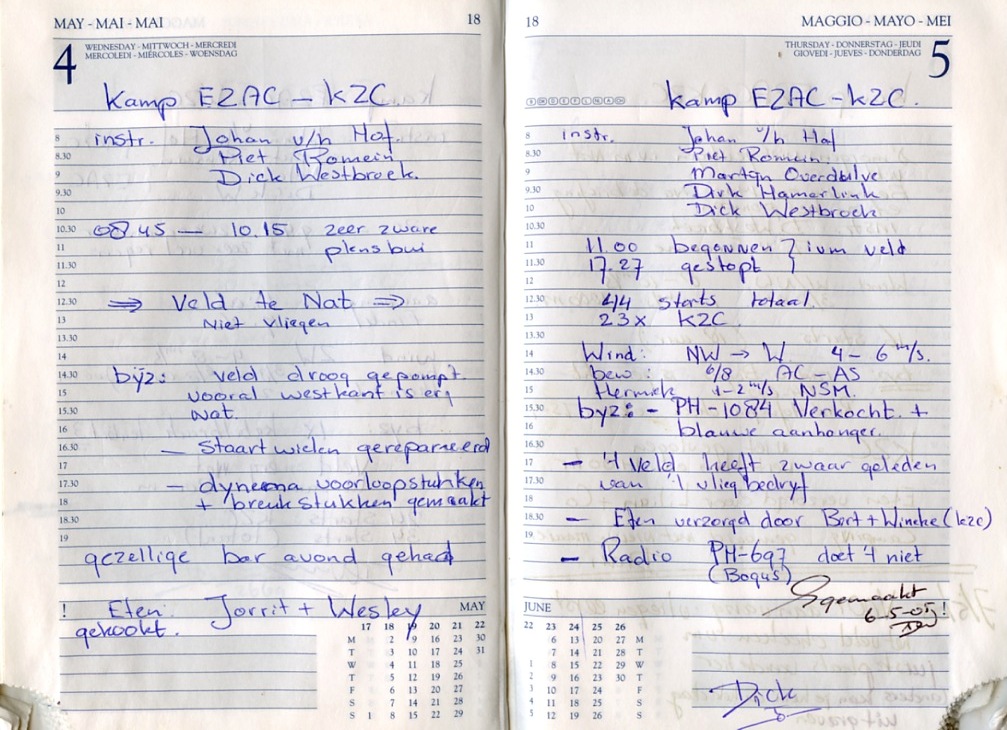 MAY - MAI - MAI 18
4 WEDNESDAY - MITTWOCH - MERCREDI
MERCOLEDI - MIÉRCOLES - WOENSDAG
Kamp EZAC - KZC
8 instr. Johan v/h Hof.
8.30 Piet Romein
9 Dick Westbroek.
9.30
10
10.30 08 45 — 10.15 zeer zware
11 plensbui
11.30
12
12.30 ⇒ Veld te Nat ⇒
13 Niet vliegen
13.30
14
14.30 byz: veld droog gepompt.
15 vooral westkant is erg
15.30 nat.
16
16.30 — Staartwielen gerepareerd
17
17.30 — dyneema voorloopstukken
18 + breukstukken gemaakt
18.30
19
gezellige bar avond gehad
! Eten. Jorrit + Wesley
gekookt.
MAY
17 18 19 20 21 22
M 2 9 16 23 30
T 3 10 17 24 31
W 4 11 18 25
T 5 12 19 26
F 6 13 20 27
S 7 14 21 28
S 1 8 15 22 29
18 MAGGIO - MAYO - MEI
THURSDAY - DONNERSTAG - JEUDI 5
GIOVEDI - JUEVES - DONDERDAG
Kamp EZAC - KZC.
8 instr. Johan v/h Hof
8.30 Piet Romein.
9 Martyn Overdulve
9.30 Dirk Hamerlink
10 Dick Westbroek
10.30
11 11.00 begonnen } ivm veld
11.30 17.27 gestopt
12
12.30 44 starts totaal.
13 23x KZC.
13.30
14 Wind: NW → W. 4 - 6 m/s.
14.30 bew: 6/8 AC - AS
15 Thermiek 1-2 m/s NSM.
15.30 byz: - PH-1084 Verkocht. +
16 blauwe aanhanger.
16.30
17 - 't Veld heeft zwaar geleden
17.30 van 't vliegbedryf
18
18.30 - Eten verzorgd door Bert + Wineke (kzc)
19
- Radio PH-697 doet 't niet
(Bogus)
gemaakt
6-5-05 !
JUNE
22 23 24 25 26
6 13 20 27 M
7 14 21 28 T
1 8 15 22 29 W
2 9 16 23 30 T
3 10 17 24 F
4 11 18 25 S
5 12 19 26 S
Dick